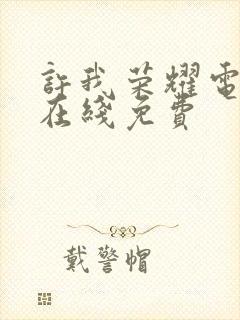 許我荣耀電
在綫免費
戴警帽